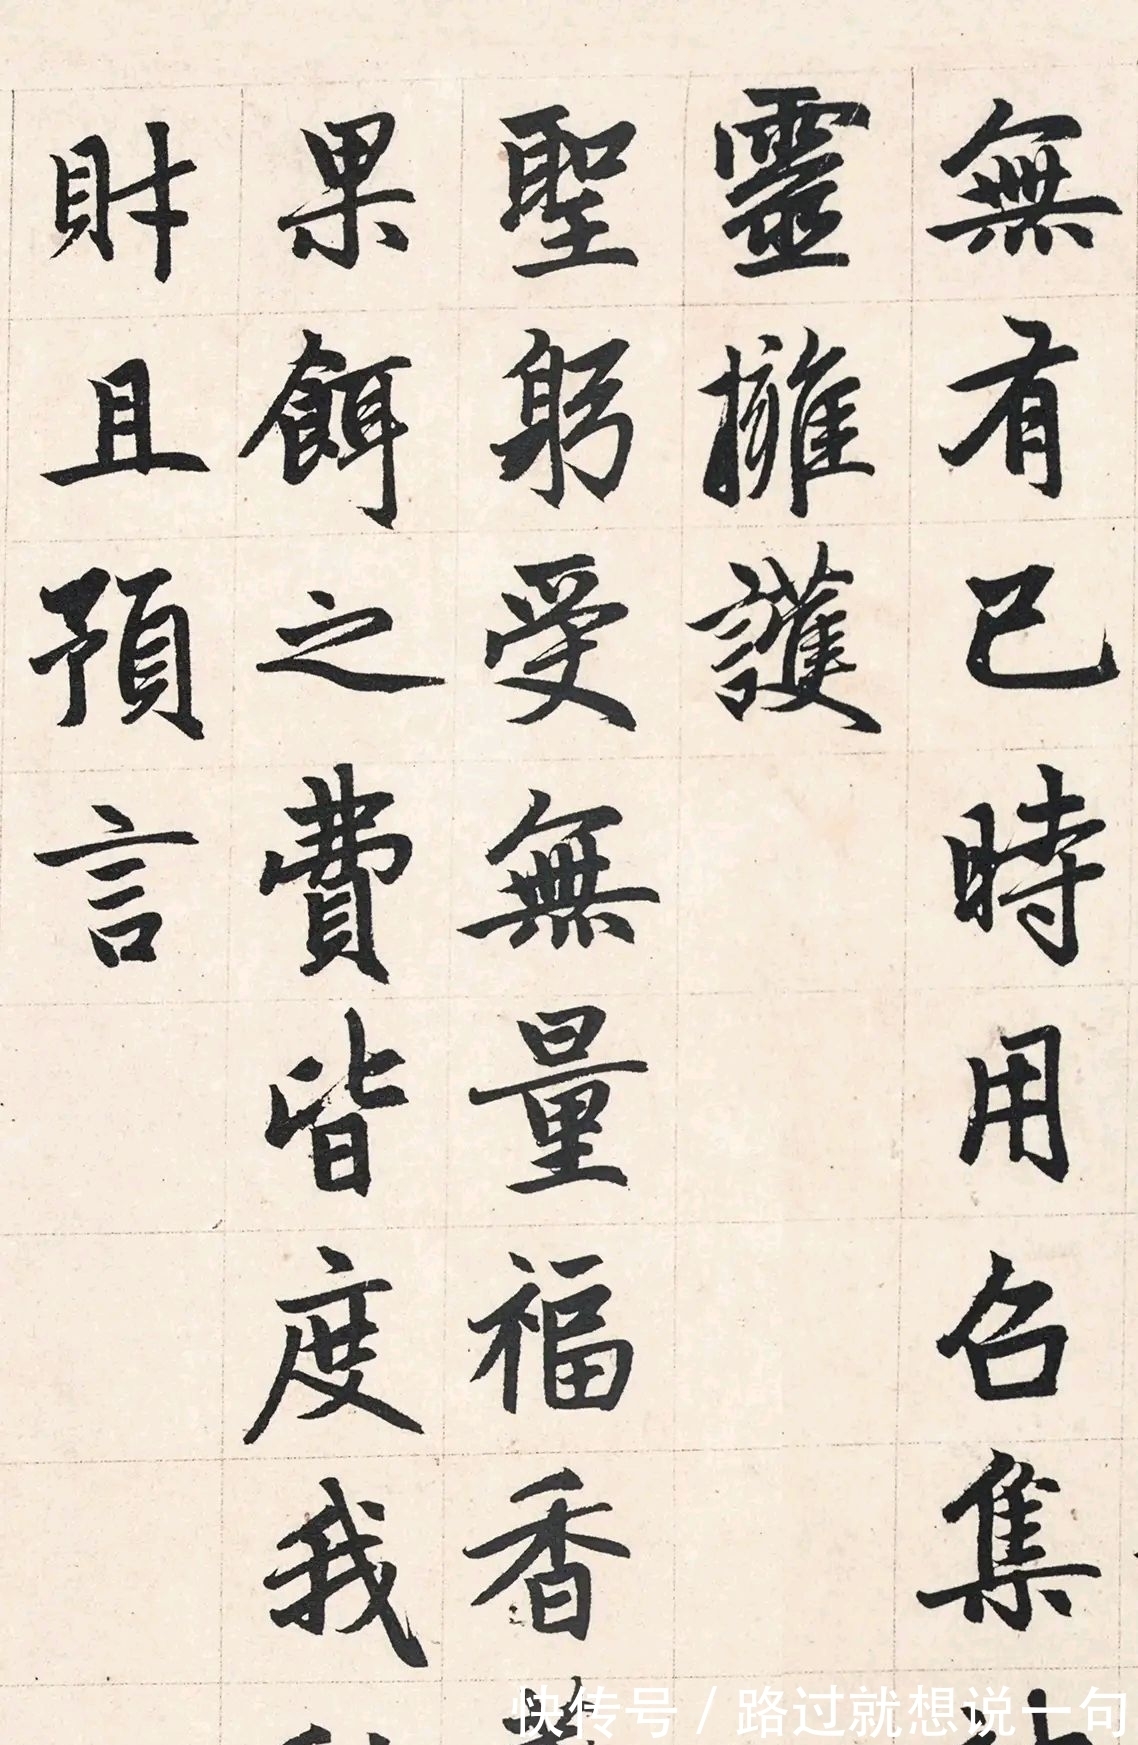 無有已時用召集
靈擁護
聖躬受無量福香
果餌之費皆度我
財且預言
快传号 / 路过就想说一句